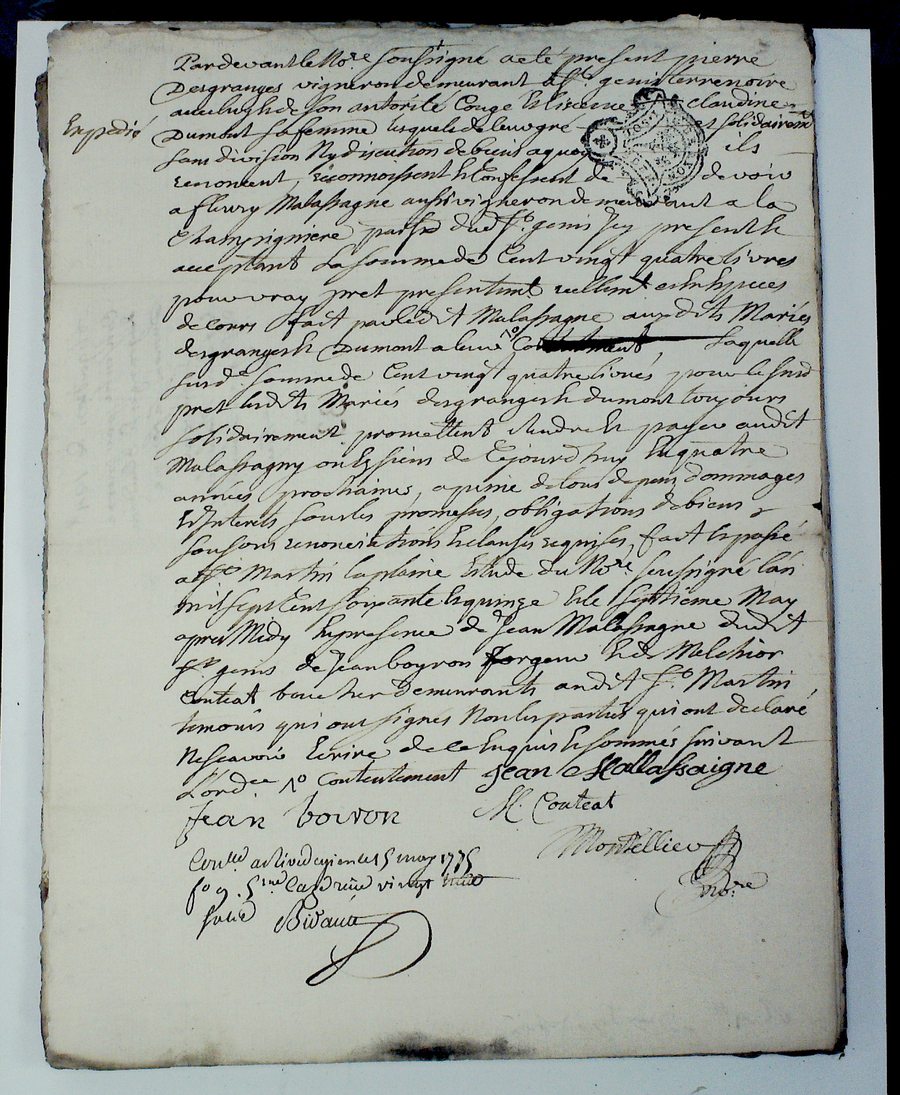 Pardevant le No.re soussigné a eté present pierre
Desgranges vigneron demeurant a S.t genis terrenoire
de son autorité Conge Et licence claudine
Expedié
Dumont sa femme lesquels de leur gré et solidairem.t
sans division Ny discution de biens a quoy ils
renoncent, reconnoissent & Confessent de devoir
a fleury Malassagne aussi vigneron demeurant a la
Champigniere parsse dud. S.t genis Icy present &
acceptant La somme de Cent vingt quatre livres
pour vray pret presentem.t reellem.t Especes
de cours fait par ledit Malassagne auxdits Mariés
desgranges & Dumont a leur Contentement, Laquelle
susd.e somme de Cent vingt quatre livres pour le susd
pret lesdits Mariés desgranges & dumont toujours
solidairement promettent Rendre Et payer audit
Malassagny ou Es siens de Cejourd'huy En quatre
années prochaines, a peine de tous depens, dommages
Et Interets sous les promesses, obligations de biens &
sous tous renonciations & clauses requises, fait & passé
a S.t Martin Laplaine Etude du No.re soussigné L'an
mil sept Cent soixante Et quinze & le septieme May
apres Midy En presence de Jean Malassagne dudit
S.t genis de Jean boyron forgeur & de Melchior
Conteat boucher demeurants audit S.t Martin
temoins qui ont signés Non les parties qui ont declaré
Ne scavoir Ecrire de ce Enquis & sommés suivant
L'ord.ce Contentement Jean Mallassaigne
Jean boiron M. Conteat
Cont.le a Rivedegier le 15 may 1775 Montellier
f.o 9. vingt No.re
sols